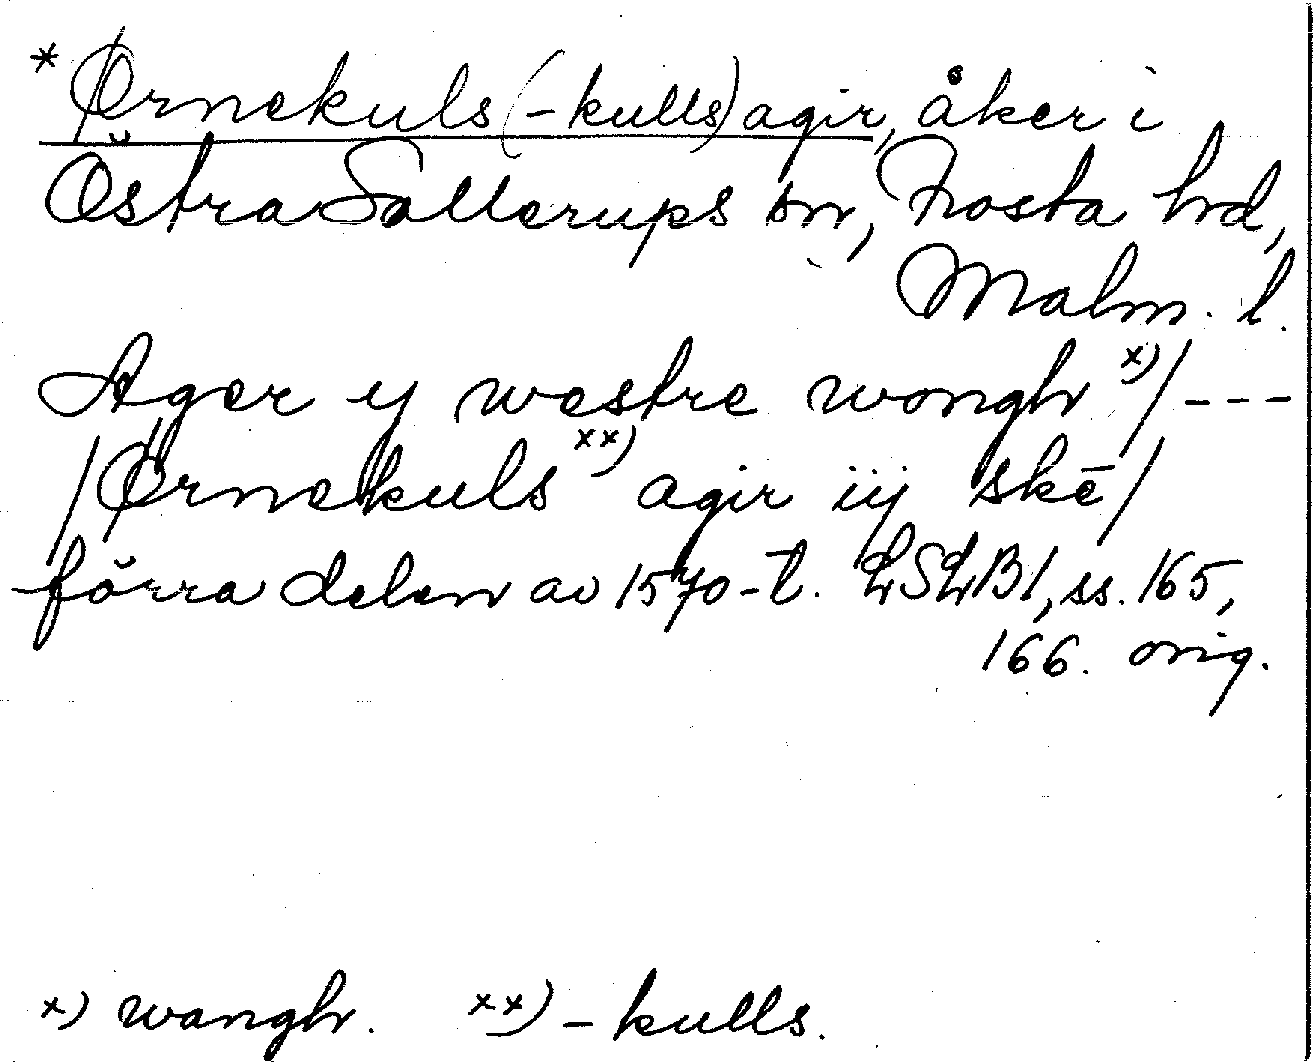 * Ørnekuls (-kulls) agir, åker i
Östra Sallerups sn, Frosta hrd,
Malm. l.
Ager y westre wongh x) / ---
/ Ørnekuls xx) agir iij skē /
förra delen av 1570-t. LSLB1, ss. 165,
166. orig.
x) wangh. xx) - kulls.